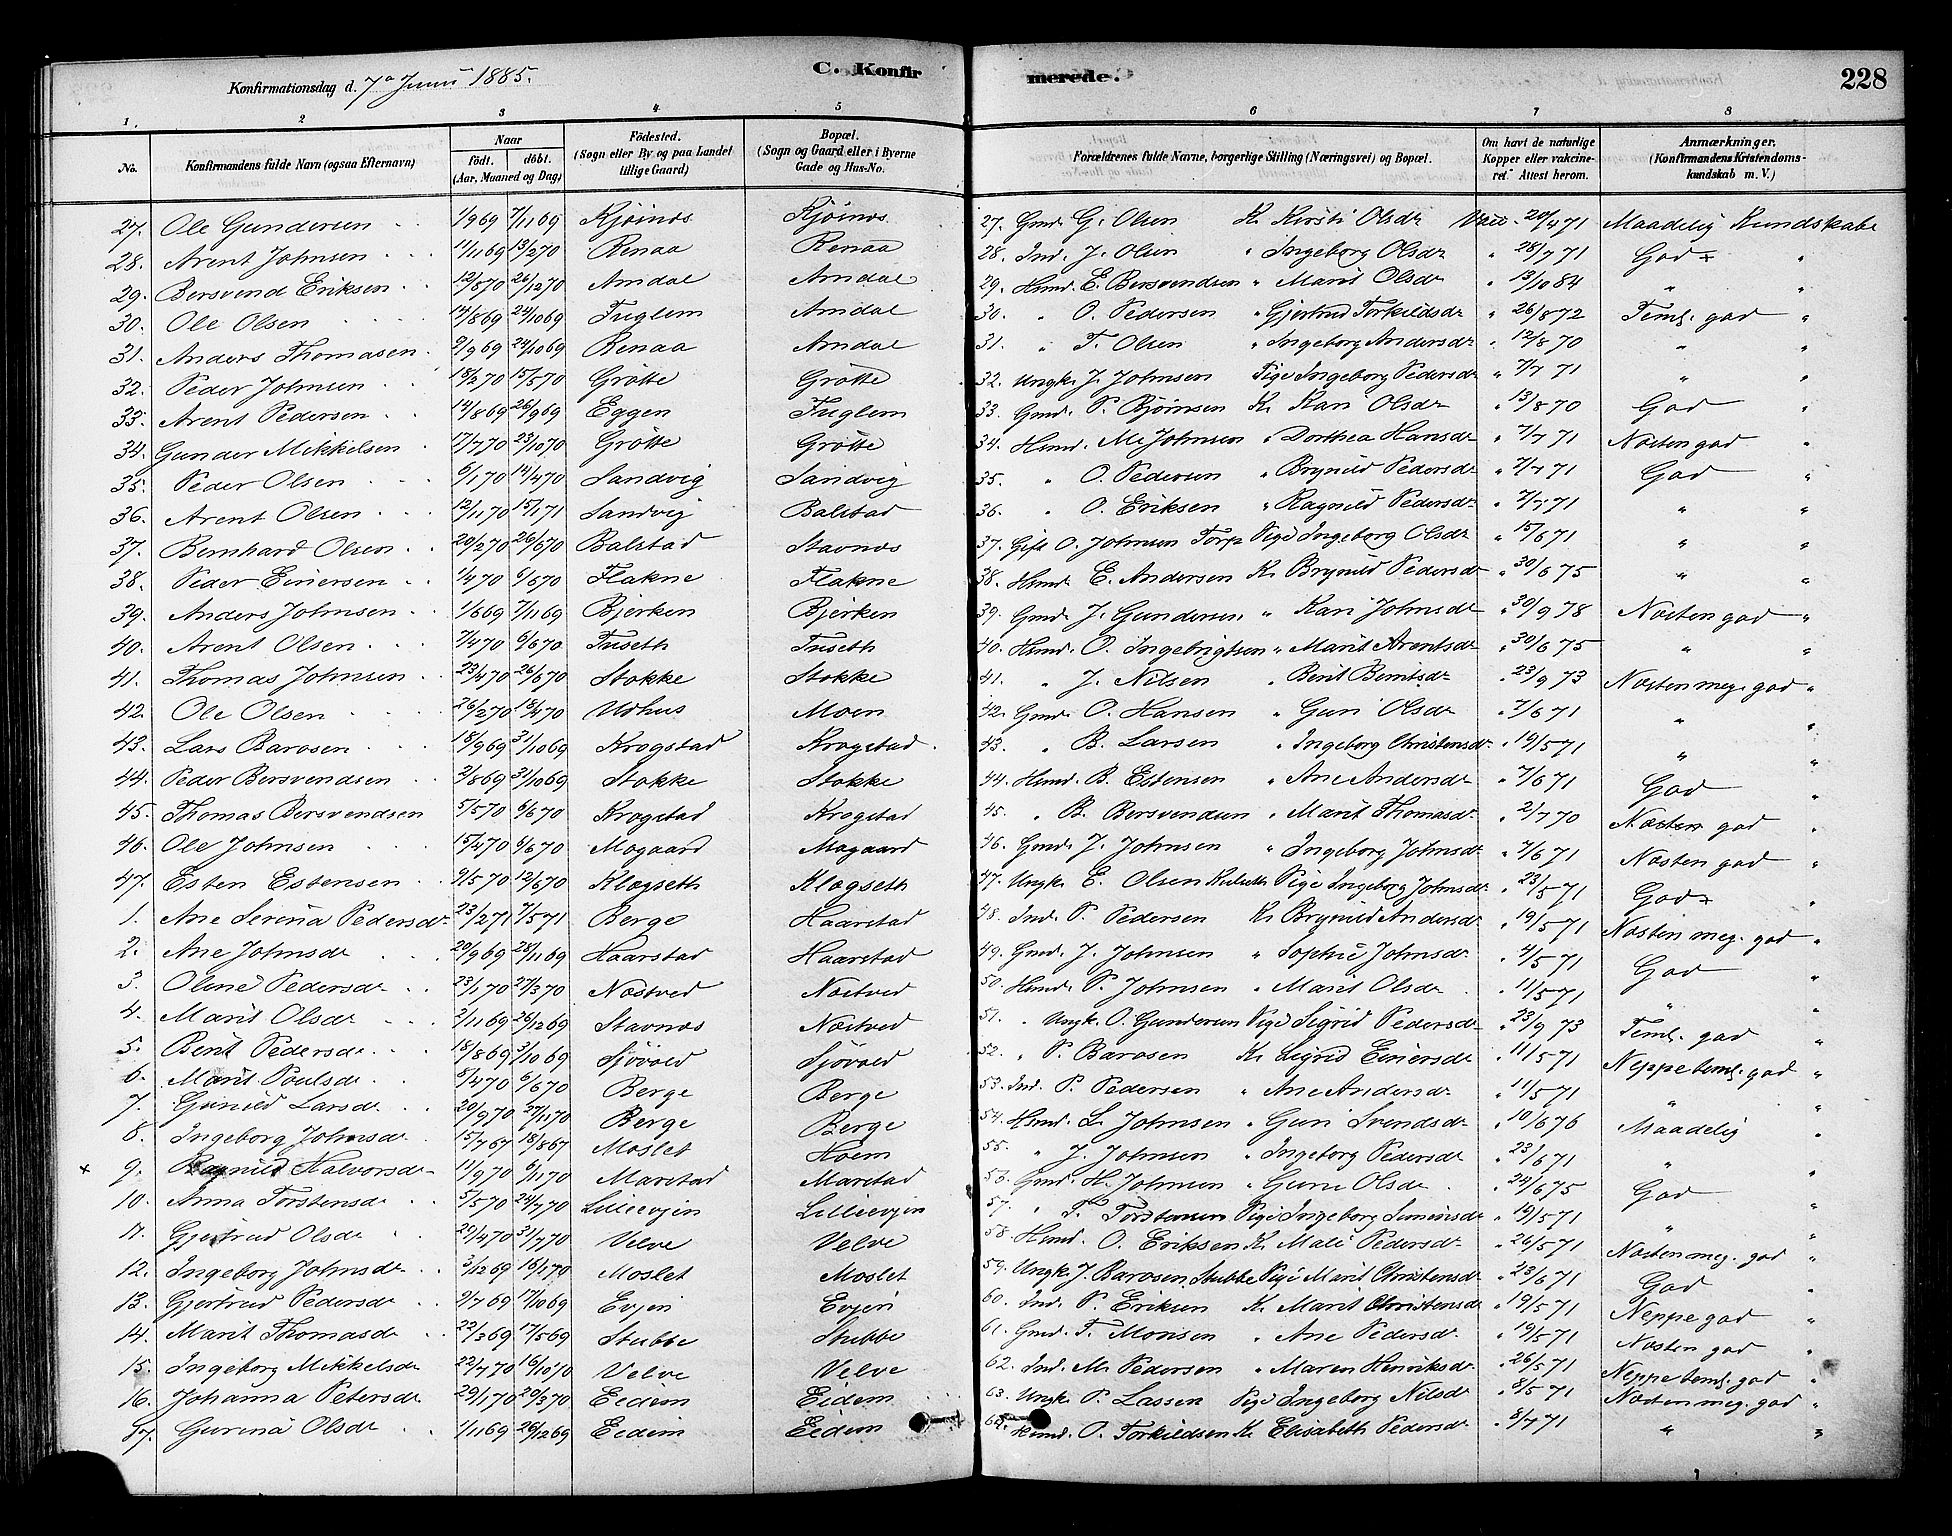 Konfirmationsdag d. 7de Juni 1885.
C. Konfirmerede.
228
1. 2 3 4 5 6 7 8
No. Konfirmandens fulde Navn (ogsaa Efternavn) Naar født. døbt. (Aar, Maaned og Dag) Fødested. (Sogn eller By og paa Landet tillige Gaard) Bopæl. (Sogn og Gaard eller i Byerne Gade og Hus-No. Forældrenes fulde Navne, borgerlige Stilling (Næringsvei) og Bopæl. Om havt de naturlige Kopper eller vakcineret. Attest herom. Anmærkninger. (Konfirmandens Kristendomskundskab m. V.)
27. Ole Gundersen 1/9 69 7/11 69 Kjøinøs Kjøinøs 27. Gmd. G. Olsen K. Kirsti Olsdr Vacc. 20/4 71 Maadelig Kundskabe
28. Arent Johnsen 11/11 69 13/2 70 Renaa Renaa 28. Ind. J. Olsen " Ingeborg Olsdr " 28/7 71 God "
29. Bersvend Eriksen 12/8 70 26/12 70 Amdal Amdal 29. Husmd. E. Bersvendsen " Marit Olsdr " 13/10 84 " "
30. Ole Olsen 14/8 69 24/10 69 Fuglem Amdal 30. " O. Pedersen " Gjertrud Torkildsdr " 26/8 72 Teml. god "
31. Anders Thomasen 2/9 69 24/10 69 Renaa Amdal 31. " T. Olsen " Ingeborg Andersdr " 12/8 70 " "
32. Peder Johnsen 18/2 70 15/5 70 Grøtte Grøtte 32. Ungk. J. Johnsen Pige Ingeborg Pedersdr " 7/7 71 " "
33. Arent Pedersen 14/8 69 26/9 69 Eggen Fuglem 33. Gmd. P. Bjørnsen K. Kari Olsdr " 13/8 70 God "
34. Gunder Mikkelsen 17/7 70 23/10 70 Grøtte Grøtte 34. Husmd. M. Johnsen " Dorthea Hansdr " 7/7 71 Næsten god "
35. Peder Olsen 6/1 70 14/4 70 Sandvig Sandvig 35. " O. Pedersen " Brynild Pedersdr " 7/7 71 God "
36. Arent Olsen 12/11 70 15/1 71 Sandvig Balstad 36. " O. Eriksen " Ragnild Pedersdr " 7/7 71 " "
37. Bernhard Olsen 20/2 70 26/6 70 Balstad Stavnøs 37. Gift O. Johnsen Torp Pige Ingeborg Olsdr " 15/6 71 " "
38. Peder Einersen 1/4 70 6/6 70 Flakne Flakne 38. Husmd. E. Andersen K. Brynild Pedersdr " 30/6 75 " "
39. Anders Johnsen 1/6 69 7/11 69 Bjerken Bjerken 39. Gmd. J. Gundersen " Kari Johnsdr " 30/9 78 Næsten god "
40. Arent Olsen 7/4 70 6/6 70 Fuseth Fuseth 40. Husmd. O. Ingebrigtsen " Marit Arentsdr " 30/6 75 " "
41. Thomas Johnsen 23/4 70 26/6 70 Stokke Stokke 41. " J. Nilsen " Berit Berntsdr " 23/9 73 Næsten meg. god "
42. Ole Olsen 26/2 70 18/4 70 Udhus Moen 42. Gmd. O. Hansen " Guri Olsdr " 7/6 71 " "
43. Lars Barosen 18/9 69 31/10 69 Krogstad Krogstad. 43. " B. Larsen " Ingeborg Christensdr " 19/5 71 " "
44. Peder Bersvendsen 3/8 69 31/10 69 Stokke Stokke 44. Husmd. B. Estensen " Ane Andersdr " 7/6 71 God "
45. Thomas Bersvendsen 5/5 70 6/6 70 Krogstad Krogstad 45. " B. Bersvendsen " Marit Thomasdr " 2/7 70 Næsten god "
46. Ole Johnsen 15/4 70 6/6 70 Mogaard Mogaard 46. Gmd. J. Johnsen " Ingeborg Johnsdr " 7/6 71 Næsten god "
47. Esten Estensen 9/5 70 12/6 70 Kløgseth Kløgseth 47. Ungk. E. Olsen Pige Ingeborg Johnsdr " 23/5 71 God "
1. Ane Serina Pedersdr 23/2 71 7/5 71 Berge Haarstad 48. Ind. P. Pedersen K. Brynild Andersdr " 19/5 71 Næsten meg. god "
2. Ane Johnsdr 20/9 69 28/11 69 Haarstad Haarstad 49. Gmd. J. Johnsen " Sophie Johnsdr " 4/5 71 God "
3. Oline Pedersdr 23/1 70 27/3 70 Nøstved Nøstved 50. Husmd. P. Johnsen " Marit Olsdr " 11/5 71 " "
4. Marit Olsdr 2/11 69 26/12 69 Stavnøs Nøstved 51. " Ungk. O. Gundersen Pige Sigrid Pedersdr " 23/9 73 Teml. god "
5. Berit Pedersdr 18/8 69 3/10 69 Sjøvold Sjøvold 52. " P. Barosen K. Sigrid Einersdr " 11/5 71 Neppe teml. god "
6. Marit Poulsdr 8/4 70 6/6 70 Berge Berge 53. Ind. P. Pedersen " Ane Andersdr " 11/5 71 " "
7. Gunild Larsdr 20/9 70 27/11 70 Berge Berge 54. Husmd. L. Johnsen " Guri Svendsdr " 10/6 76 Maadelig "
8. Ingeborg Johnsdr 15/7 67 18/8 67 Moslet Hoem 55. " J. Johnsen " Ingeborg Pedersdr " 23/6 71 " "
+ 9. Ragnild Halvorsdr 11/9 70 6/11 70 Marstad Marstad 56. Gmd. H. Johnsen " Guru Olsdr " 29/6 75 God "
10. Anna Torstensdr 5/5 70 24/7 70 Lillevjen Lillevjen 57. " T. Torstensen Pige Ingeborg Simensdr " 19/5 71 " "
11. Gjertrud Olsdr 29/4 70 31/7 70 Velve Velve 58. Husmd. O. Eriksen K. Mali Pedersdr " 26/5 71 Næsten meg. god "
12. Ingeborg Johnsdr 3/12 69 16/1 70 Moslet Moslet 59. Ungk. J. Barosen Stubbe Pige Marit Christensdr " 23/6 71 God "
13. Gjertrud Pedersdr 2/7 69 17/10 69 Evjen Evjen 60. Ind. P. Eriksen K. Marit Christensdr " 19/5 71 Neppe god "
14. Marit Thomasdr 22/3 69 17/5 69 Stubbe Stubbe 61. Gmd. T. Monsen " Ane Pedersdr " 19/5 71 Næsten god "
15. Ingeborg Mikkelsdr 22/7 70 16/10 70 Velve Velve 62. Ind. M. Pedersen " Maren Henriksdr " 26/5 71 Neppe teml. god "
16. Johanna Petersdr 29/1 70 20/3 70 Eidem Eidem 63. Ungk. P. Lassen Pige Ingeborg Nilsdr " 8/5 71 Næsten meg. god "
17. Gurina Olsdr 1/11 69 26/12 69 Eidem Eidem 64. Husmd. O. Torkildsen K. Elisabeth Pedersdr " 3/7 71 " "